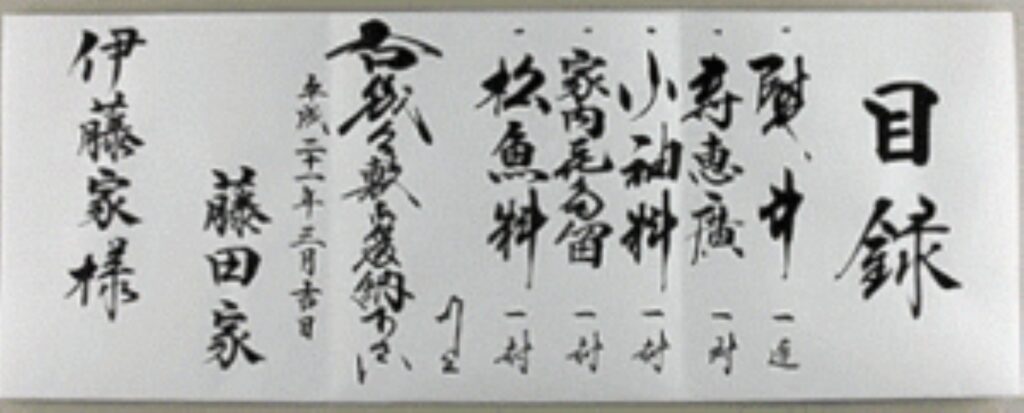 目録
一 熨斗 一連
一 寿恵廣 一対
一 小袖料 一対
一 家内喜多留 一対
一 松魚料 一対
以上
右幾久敷御受納下さい
平成二十一年三月吉日
藤田家
伊藤家様